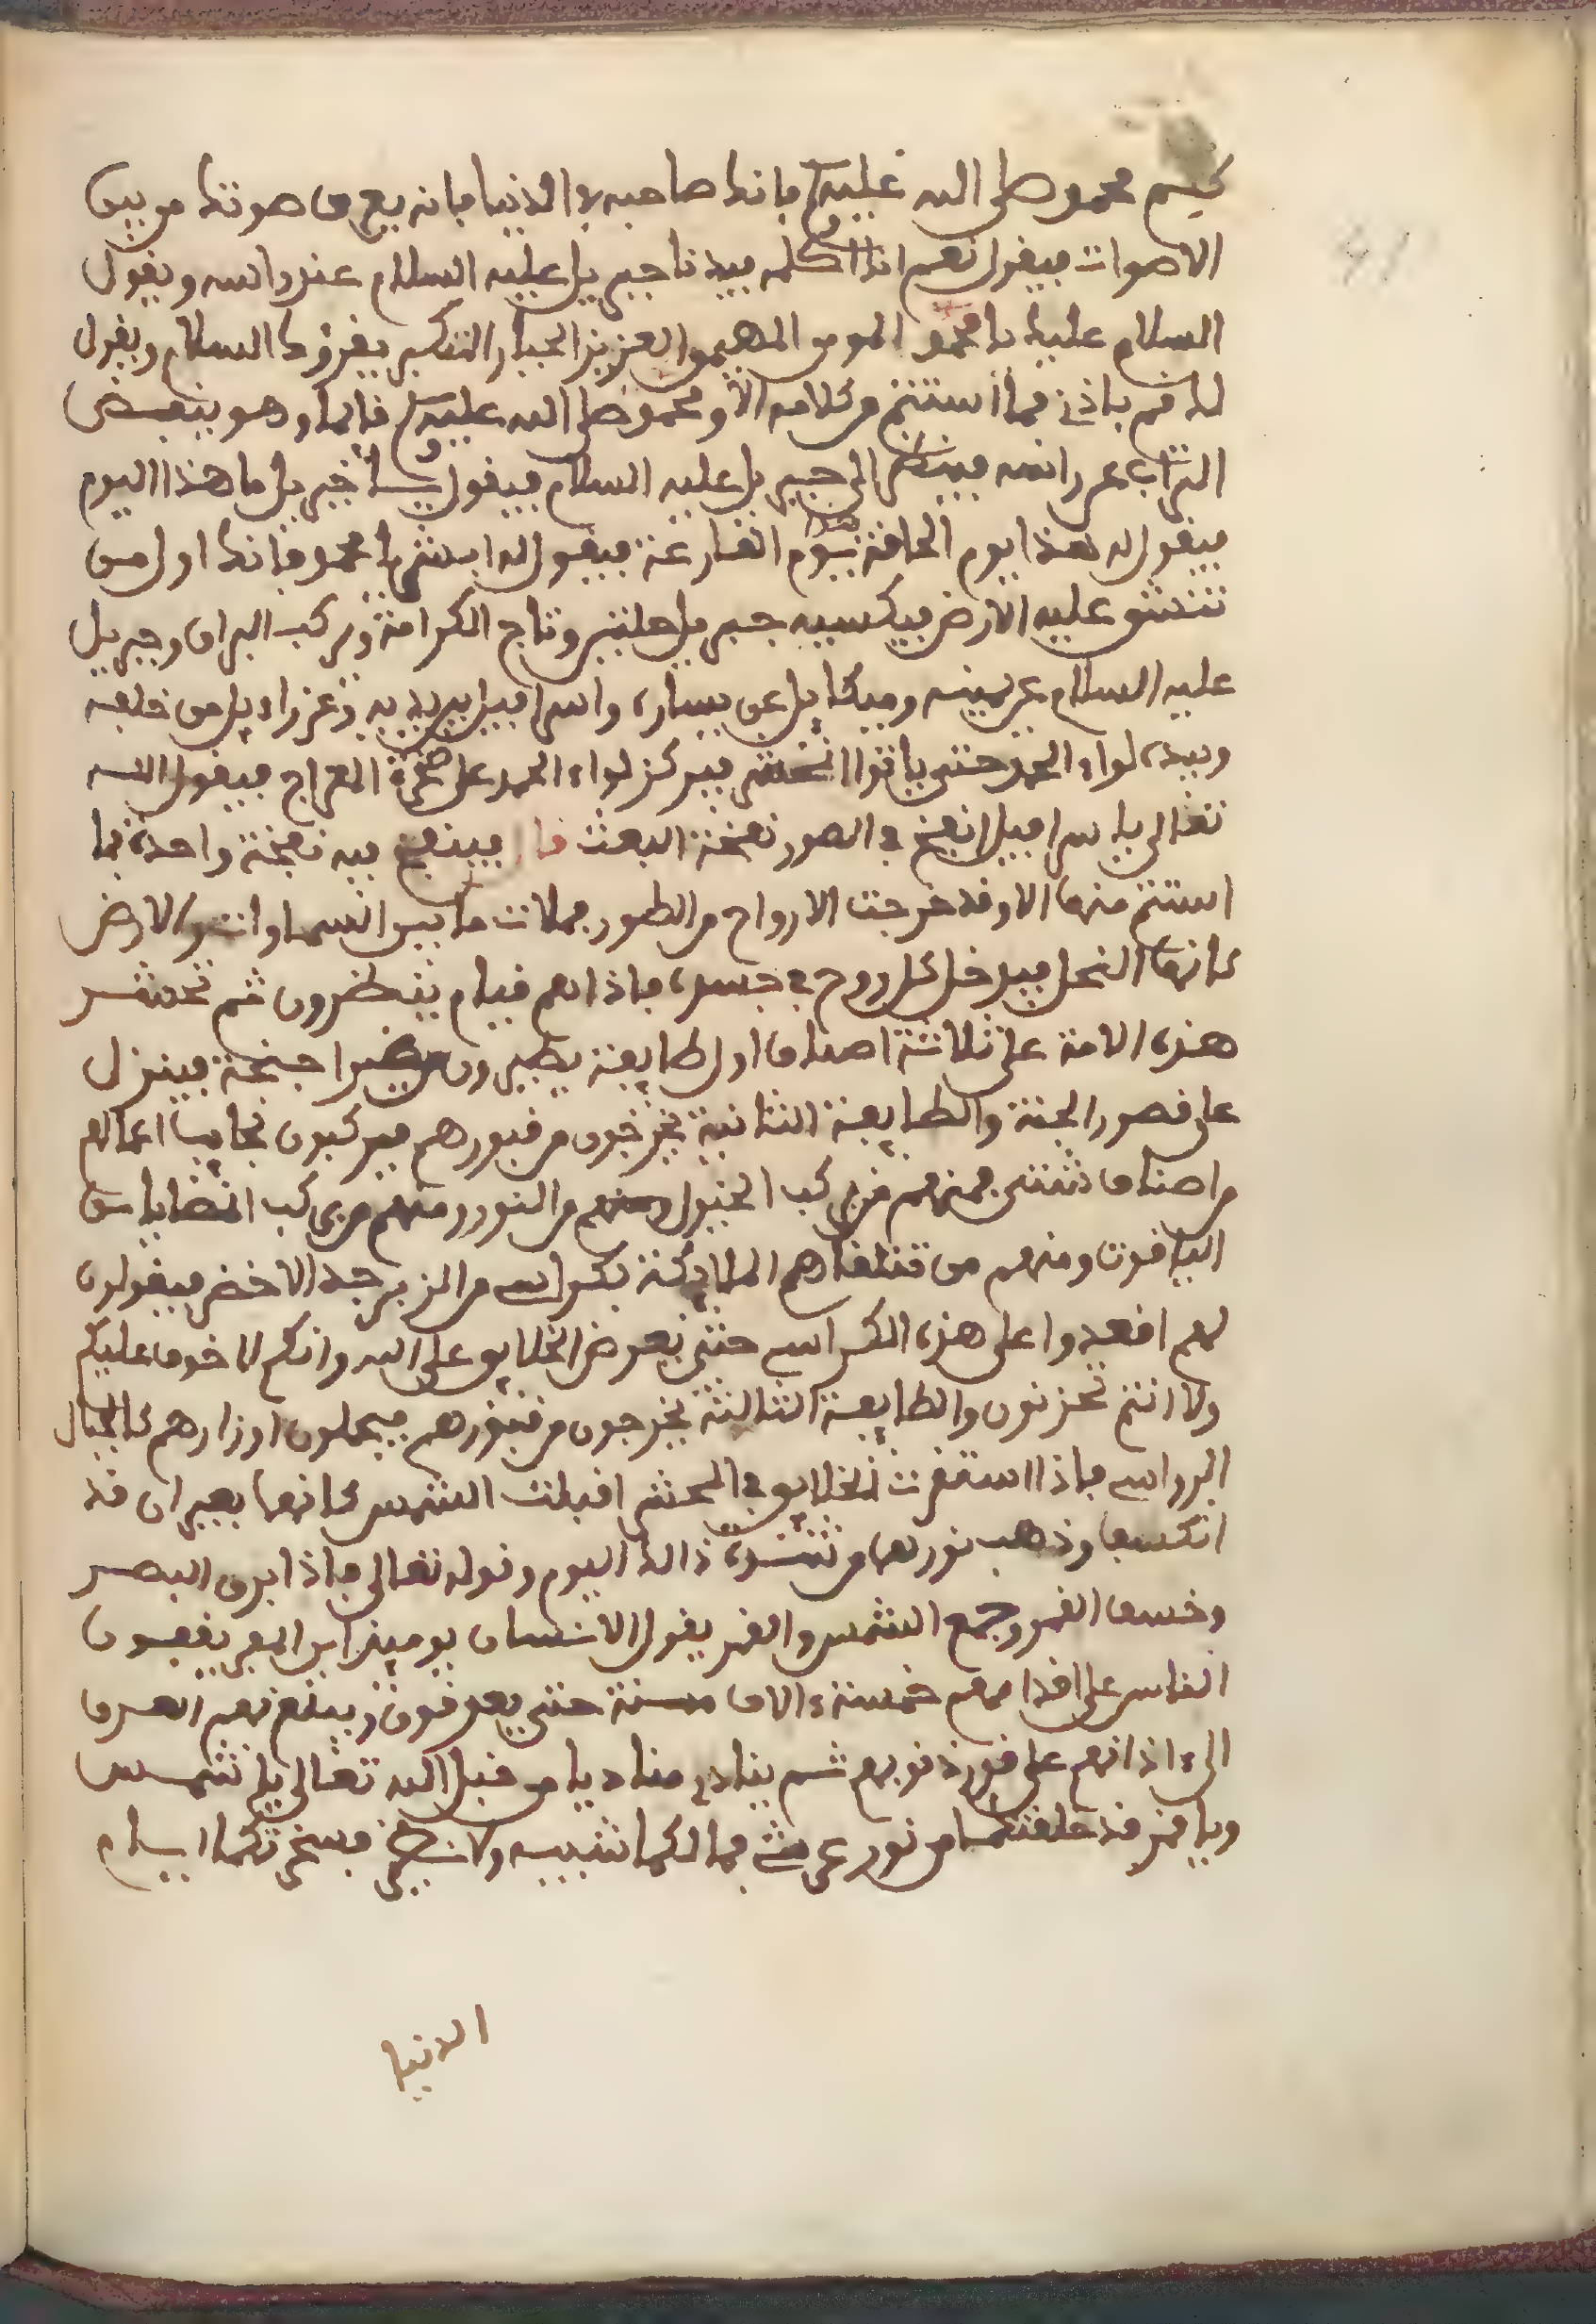 كلم محمد صلى الله عليه وسلم فانك صاحبه في الدنيا فانه يعرف صوتك من بين
الاصوات فيقول نعم انا اكلمه فيدنا جبريل عليه السلام عند راسه ويقول
السلام عليك يا محمد المومن المهيمن العزيز الجبار المتكبر يقرؤك السلام ويقول
لك قم باذني فما استتم من كلامه الا ومحمد صلى الله عليه وسلم قايما وهو ينفض
التراب عن راسه فينظر الى جبريل عليه السلام فيقول يا جبريل ما هذا اليوم
فيقول له هذا يوم الحافة هذا يوم القارعة فيقول له ابشر يا محمد فانك اول من
تنشق عليه الارض فيكسيه جبريل حلتين وتاج الكرامة ويركب البراق وجبريل
عليه السلام عن يمينه وميكايل عن يساره واسرافيل بين يديه وعزراءيل من خلفه
وبيده لواء الحمد حتى ياتوا المحشر فيركز لواء الحمد على صخرة المعراج فيقول الله
تعالى يا سرافيل انفخ في الصور نفخة البعث قال فينفخ فيه نفخة واحدة فما
استتم منها الا وقد خرجت الارواح من الصور فملات ما بين السماوات والارض
كانها النحل فيدخل كل روح في جسده فاذا هم قيام ينظرون ثم تحشر
هذه الامة على ثلاثة اصناف اول طايفة يطيرون طيرا جنحة فينزل
على قصور الجنة والطايفة الثانية يخرجون من قبورهم فيركبون نجايب اعمالهم
من اصناف شتى فمنهم من يركب الخيول ومنهم من النور ومنهم من يركب المطايا من
الياقوت ومنهم من تتلقاهم الملايكة بكراسي من الزبرجد الاخضر فيقولون
لهم اقعدوا على هذه الكراسي حتى يعرض الخلايق على الله وانكم لا خوف عليكم
ولا انتم تحزنون والطايفة الثالثة يخرجون من قبورهم فيحملون اوزارهم كالجبال
الرواسي فاذا استقرت الخلايق في المحشر اقبلت الشمس كانها بعيران قد
انكسفا وذهب نورهما من شدة ذالك اليوم وقوله تعالى فاذا برق البصر
وخسف القمر وجمع الشمس والقمر يقول الانسان يوميذ اين المفر يقفون
الناس على اقدامهم خمسة ءالاف سنة حتى يعرقون ويبلغ بهم العرق
الى ءاذانهم على قدر ذنوبهم ثم ينادي مناديا من قبل الله تعالى يا شمس
ويا قمر قد خلقتكما من نور عرشي فما لكما شبيه ولا نظير فسخرتكما ايام
الدنيا